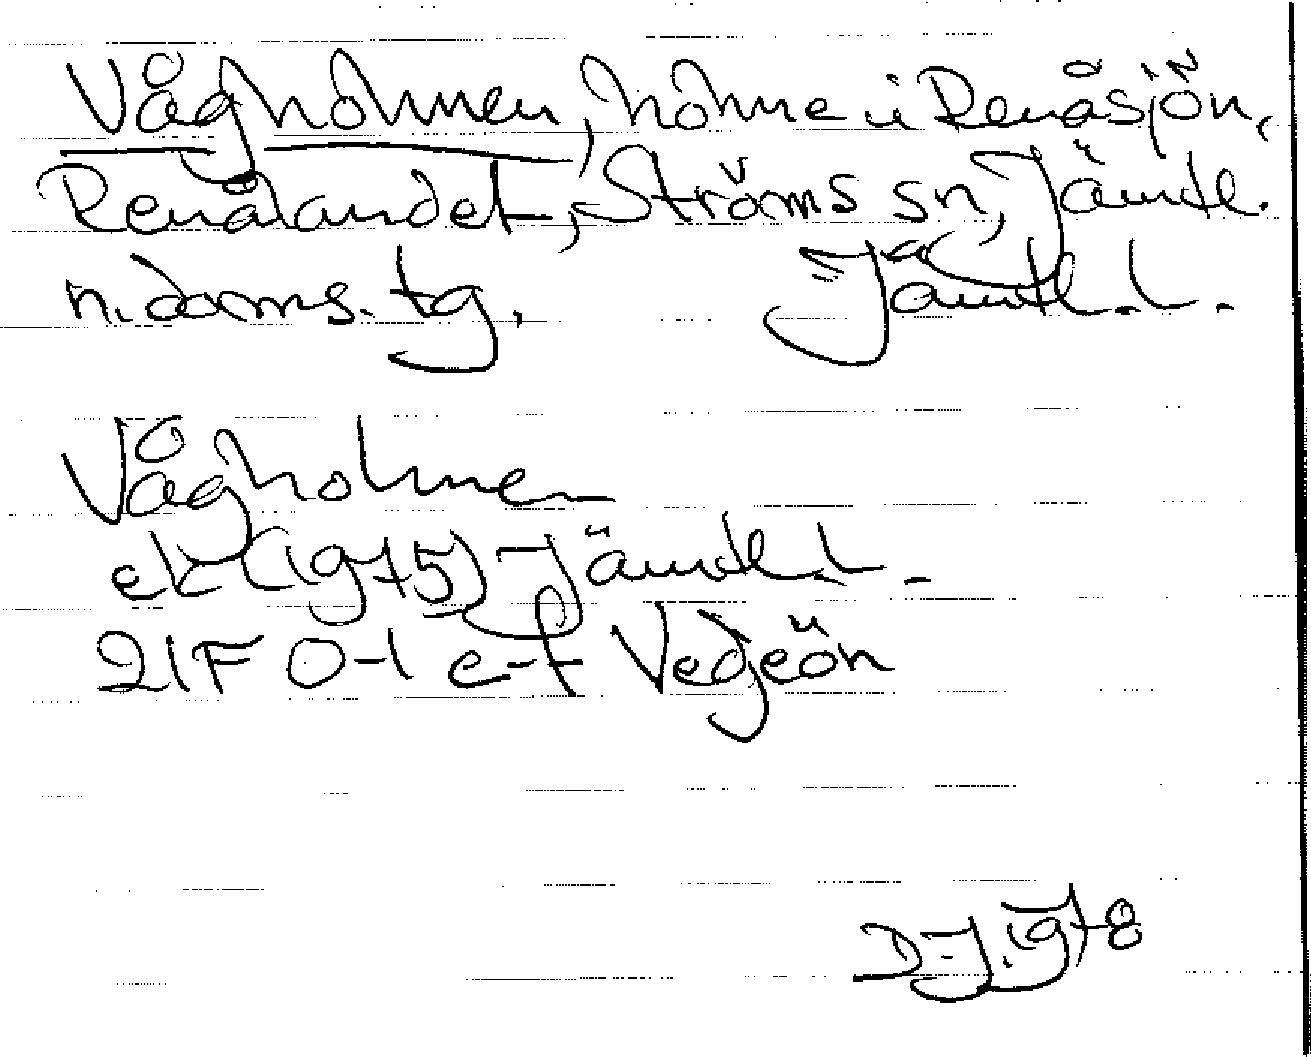 Vågholmen, holme i Renåsjön,
Renålandet, Ströms sn, Jämtl.
n. doms. tg. Jämtl. L.
Vågholmen
ek (1975) Jämtl. L.
21F 0-1 e-f Vedjeön
D.J. 1978